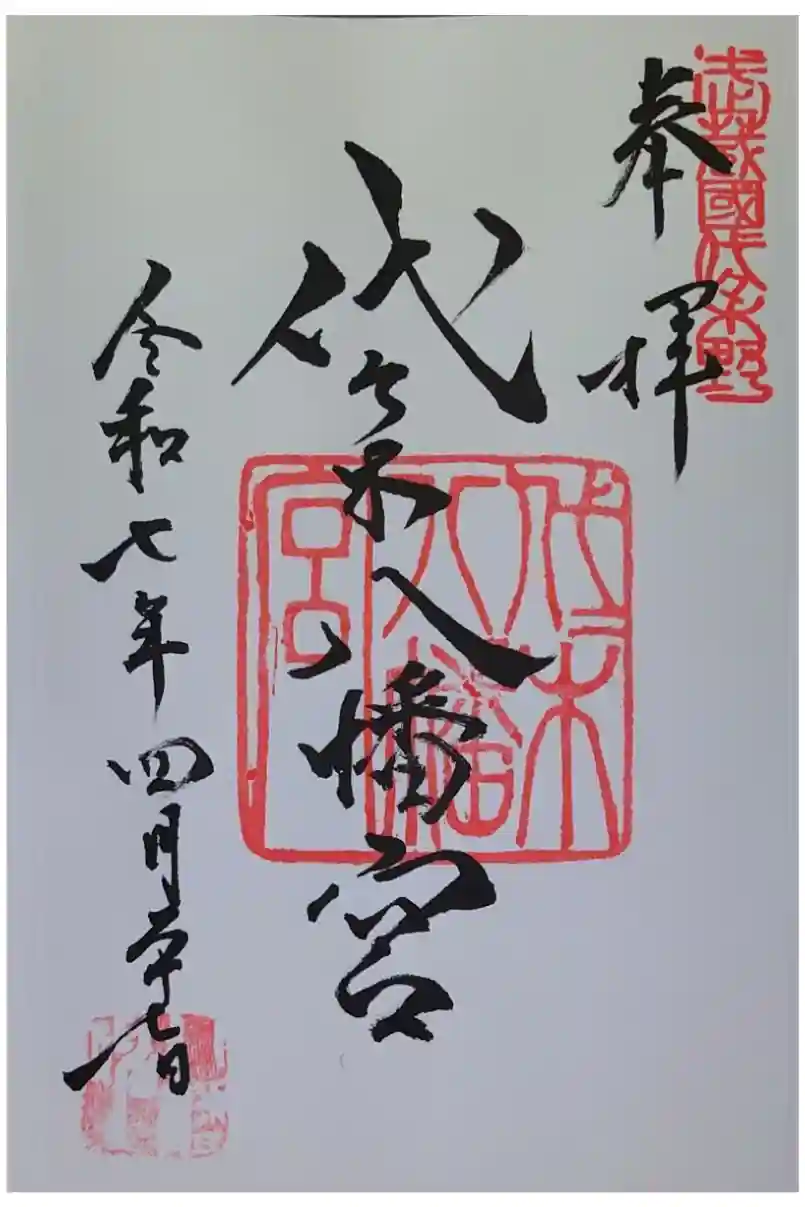 武蔵國代々木野
奉拝
代々木八幡宮
代々木
八幡
宮
令和七年四月七日